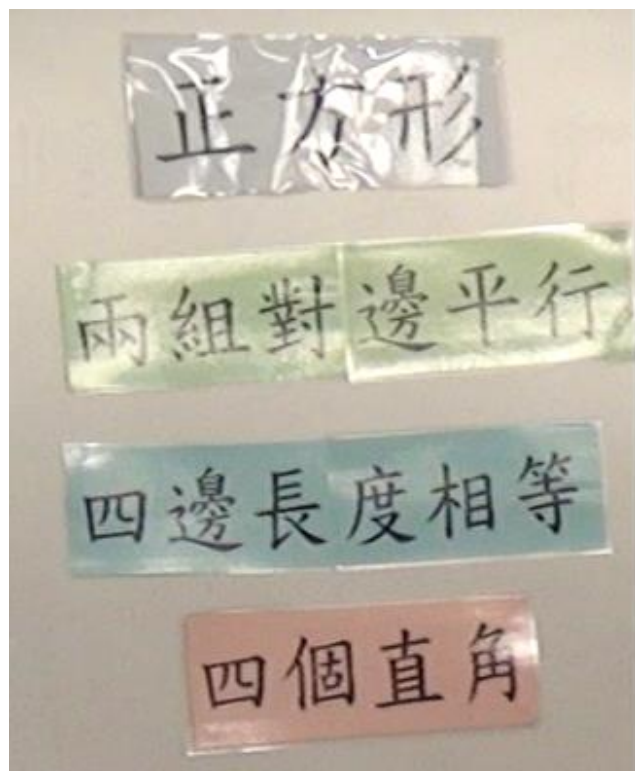 正方形
兩組對邊平行
四邊長度相等
四個直角